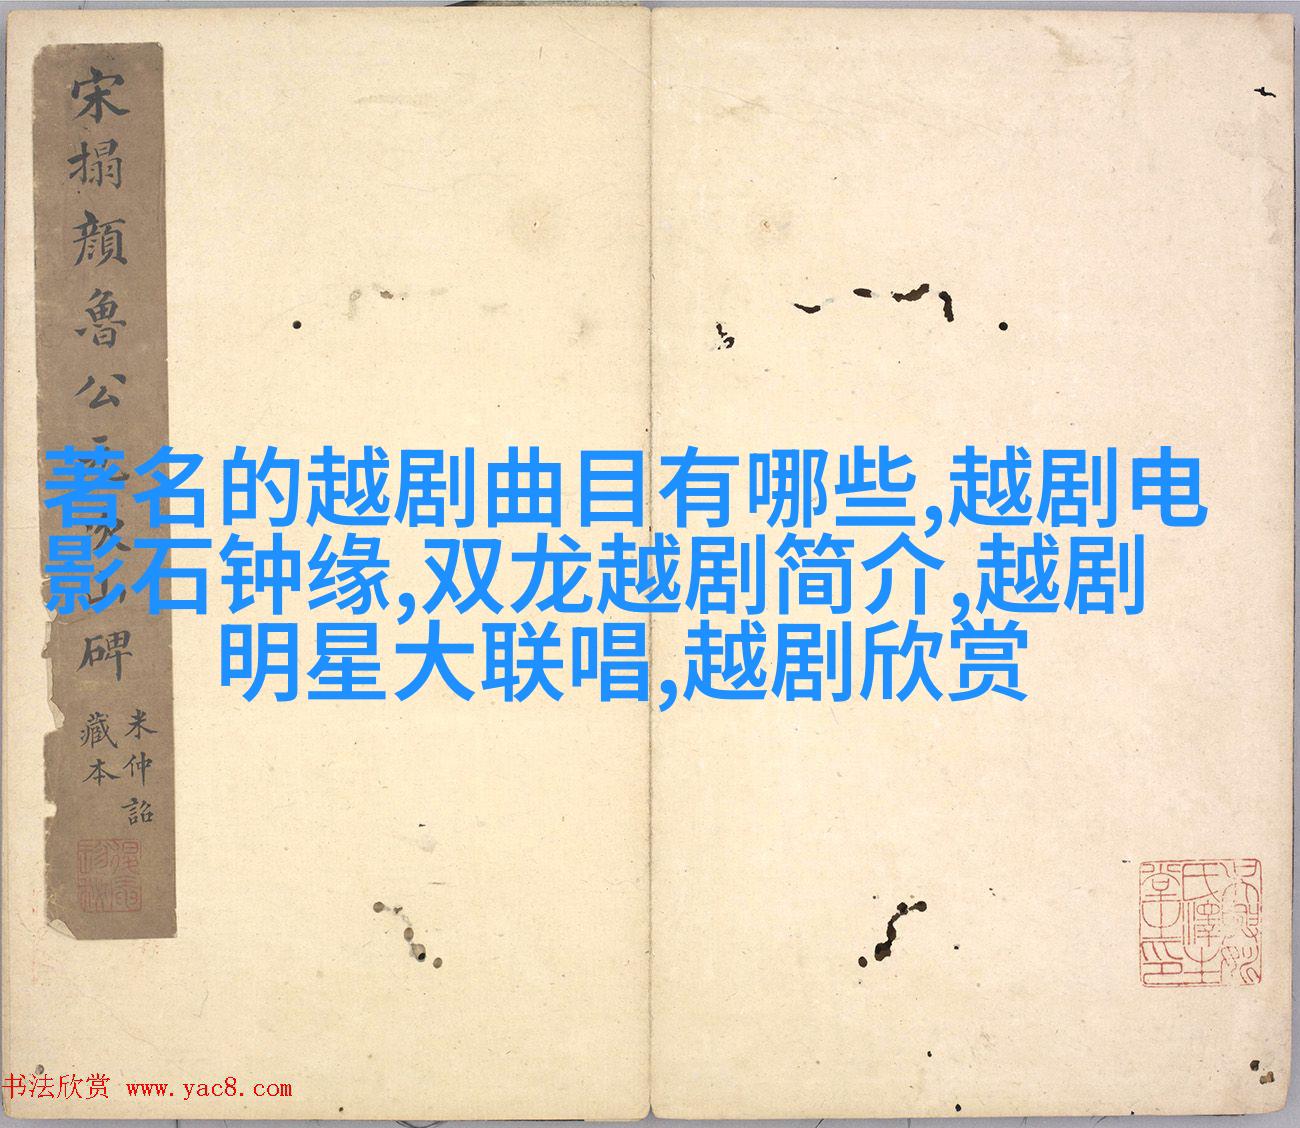 宋搨顔魯公元次山碑
米仲詔
藏本
著名的越剧曲目有哪些,越剧电
影石钟缘,双龙越剧简介,越剧
明星大联唱,越剧欣赏
书法欣赏 www.yac8.com